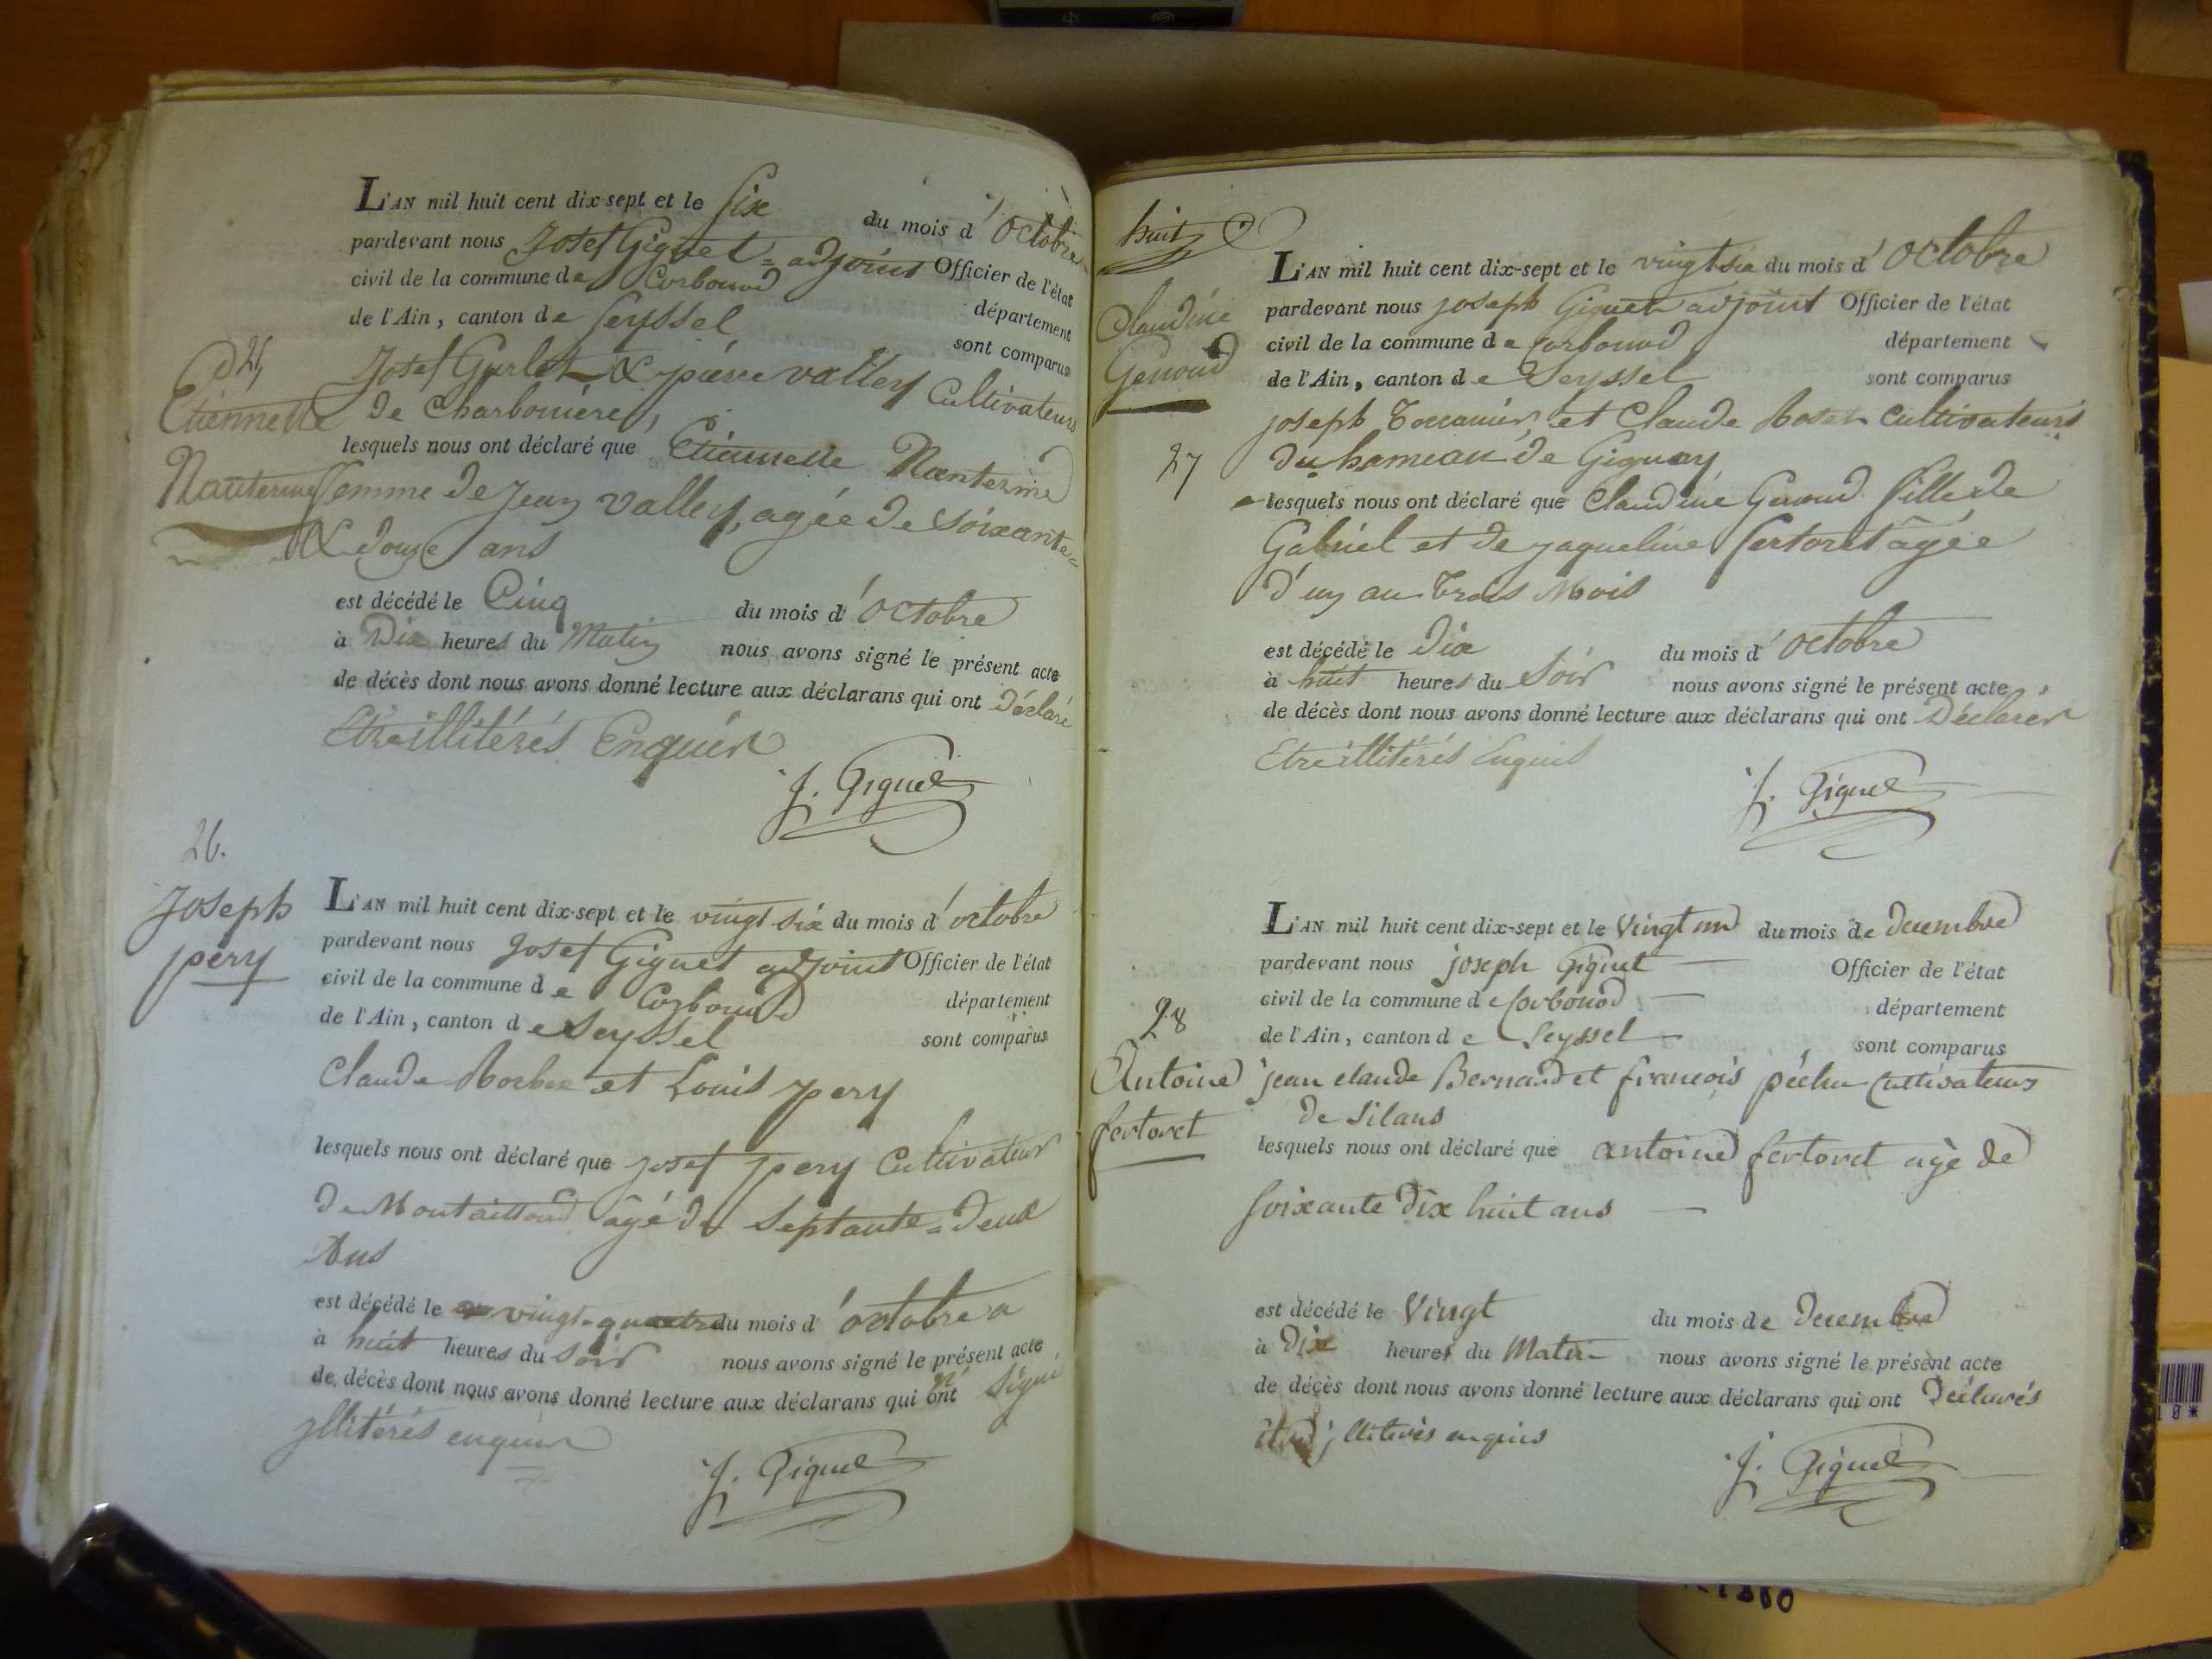 L'AN mil huit cent dix-sept et le six du mois d'Octobre
pardevant nous Josef Giguet = adjoint Officier de l'état
civil de la commune de Corbonod département
de l'Ain, canton de Seyssel sont comparus
Josef Gurlet & pierre vallley Cultivateurs
de Charboniere,
25
Etiennette
Nanterme
lesquels nous ont déclaré que Etiennette Nanterme
femme de Jean Valley, agée de Soixante=
& douze ans
est décédé le Cinq du mois d'Octobre
à Dix heures du Matin nous avons signé le présent acte
de décès dont nous avons donné lecture aux déclarans qui ont Déclaré
Etre illitérés Enquér
J. Giguet
26.
Joseph
pery
L'AN mil huit cent dix-sept et le vingt six du mois d'octobre
pardevant nous Josef Giguet adjoint Officier de l'état
civil de la commune de Corbonod département
de l'Ain, canton de Seyssel sont comparus
Claude et Louis pery
lesquels nous ont déclaré que Josef pery Cultivateur
De Montailloud agé de Septante = Deux
Ans
est décédé le vingt-quatre du mois d'octobre a
à huit heures du soir nous avons signé le présent acte
de décès dont nous avons donné lecture aux déclarans qui n'ont Signé
jllitérés enquér
J. Giguet
huit
Claudine
Genoud
27
L'AN mil huit cent dix-sept et le vingt six du mois d'Octobre
pardevant nous joseph Giguet adjoint Officier de l'état
civil de la commune de Corbonod département
de l'Ain, canton de Seyssel sont comparus
joseph et Claude Rosset Cultivateurs
du hameau de Gignay
lesquels nous ont déclaré que Claudine Genoud fille de
Gabriel et de Jaqueline fertoret âgée
d'un an trois Mois
est décédé le Dix du mois d'octobre
à huit heures du Soir nous avons signé le présent acte
de décès dont nous avons donné lecture aux déclarans qui ont Déclarér
Etre illitérés Enquis
J. Giguet
28
Antoine
fertoret
L'AN mil huit cent dix-sept et le Vingt un du mois de decembre
pardevant nous joseph Giguet Officier de l'état
civil de la commune de Corbonod département
de l'Ain, canton de Seyssel sont comparus
jean claude Bernard et francois péchu Cultivateurs
de Silans
lesquels nous ont déclaré que antoine fertoret agé de
Soixante Dix huit ans
est décédé le Vingt du mois de decembre
à Dix heures du Matin nous avons signé le présent acte
de décès dont nous avons donné lecture aux déclarans qui ont Déclarés
jllitérés enquis
J. Giguet